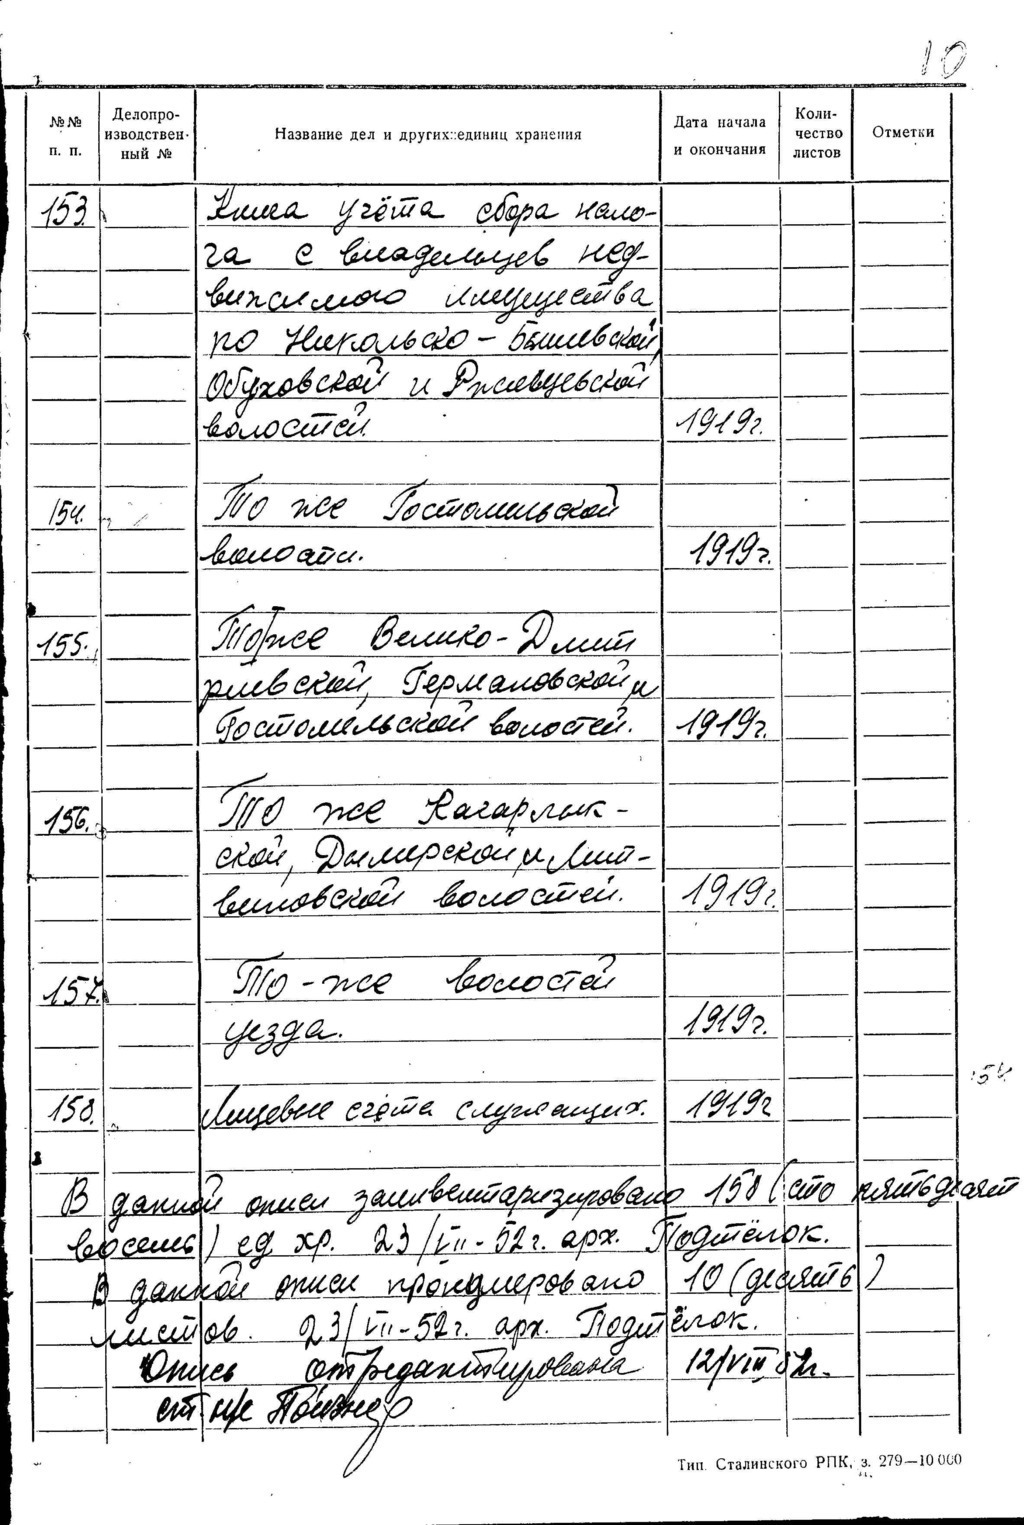 10
№№ п. п.
Делопроизводствен-ный №
Название дел и других единиц хранения
Дата начала и окончания
Коли-чество листов
Отметки
153. Книга учёта сбора нало-
га с владельцев нед-
вижимого имущества
по Никольско-Бышевской,
Обуховской и Ржавцевской
волостей. 1919г.
154. То же Гостомельской
волости. 1919г.
155. То же Велико-Дмит
риевской, Германовской и
Гостомельской волостей. 1919г.
156. То же Кагарлык-
ской, Дымерской и Лит-
виновской волостей. 1919г.
157. То-же волостей
уезда. 1919г.
158. Лицевые счёта служащих. 1919г
В данной описи заинвентаризировано 158 (сто пятьдесят
восемь) ед хр. 23/VII-52г. арх. Подтёлок.
В данной описи пронумеровано 10 (десять)
листов. 23/VII-52г. арх. Подтёлок.
Опись отредактирована 12/VIII 52г.
ст. н/с
Тип. Сталинского РПК, з. 279—10 000